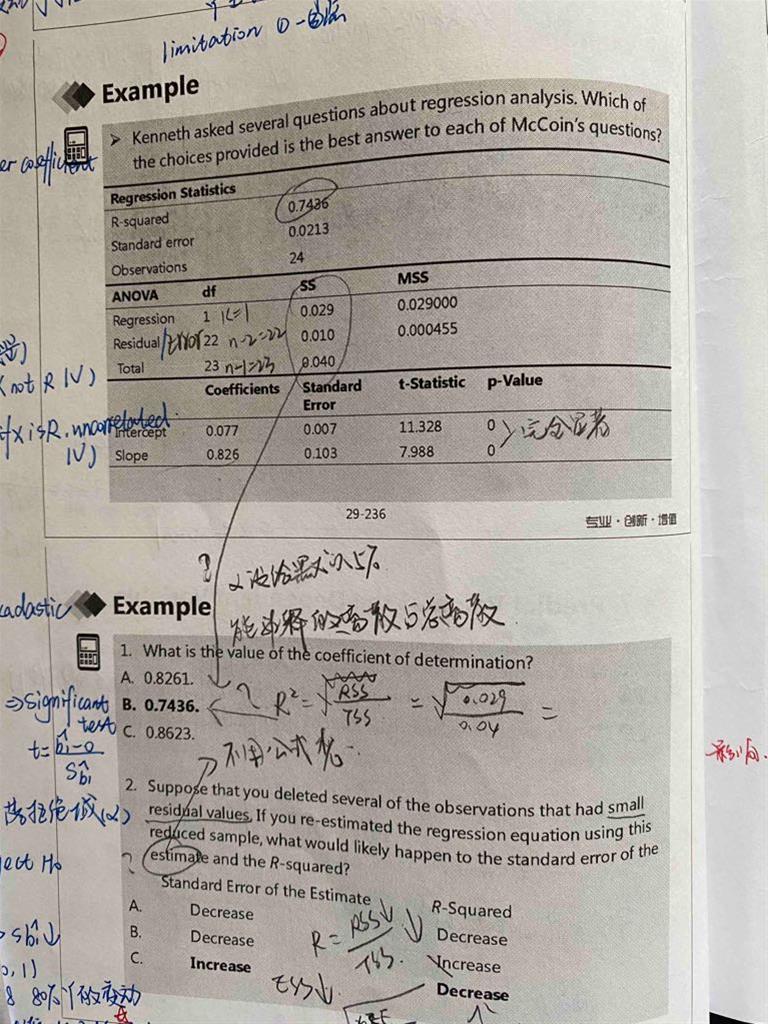 limitation
Example
➢ Kenneth asked several questions about regression analysis. Which of
the choices provided is the best answer to each of McCoin's questions?
er coefficient
Regression Statistics
R-squared 0.7436
Standard error 0.0213
Observations 24
ANOVA df SS MSS
Regression 1 K=1 0.029 0.029000
Residual/Error 22 n-2=22 0.010 0.000455
Total 23 n-1=23 0.040
(not R IV)
Coefficients Standard Error t-Statistic p-Value
if x is R. uncorrelated
IV)
Intercept 0.077 0.007 11.328 0
Slope 0.826 0.103 7.988 0
完全显著
29-236
专业·创新·增值
? α没给默认5%
能解释的离散与总离散
Example
1. What is the value of the coefficient of determination?
A. 0.8261.
B. 0.7436.
C. 0.8623.
? R² = √RSS/TSS = √0.029/0.04 =
⇒significant
test
t=
利用公式
2. Suppose that you deleted several of the observations that had small
residual values. If you re-estimated the regression equation using this
reduced sample, what would likely happen to the standard error of the
estimate and the R-squared?
?
Standard Error of the Estimate R-Squared
A. Decrease Decrease
B. Decrease Increase
C. Increase Decrease
R = RSS↓/TSS. ↓
TSS↓.
ject H₀
0,1)
8 80% 的变动